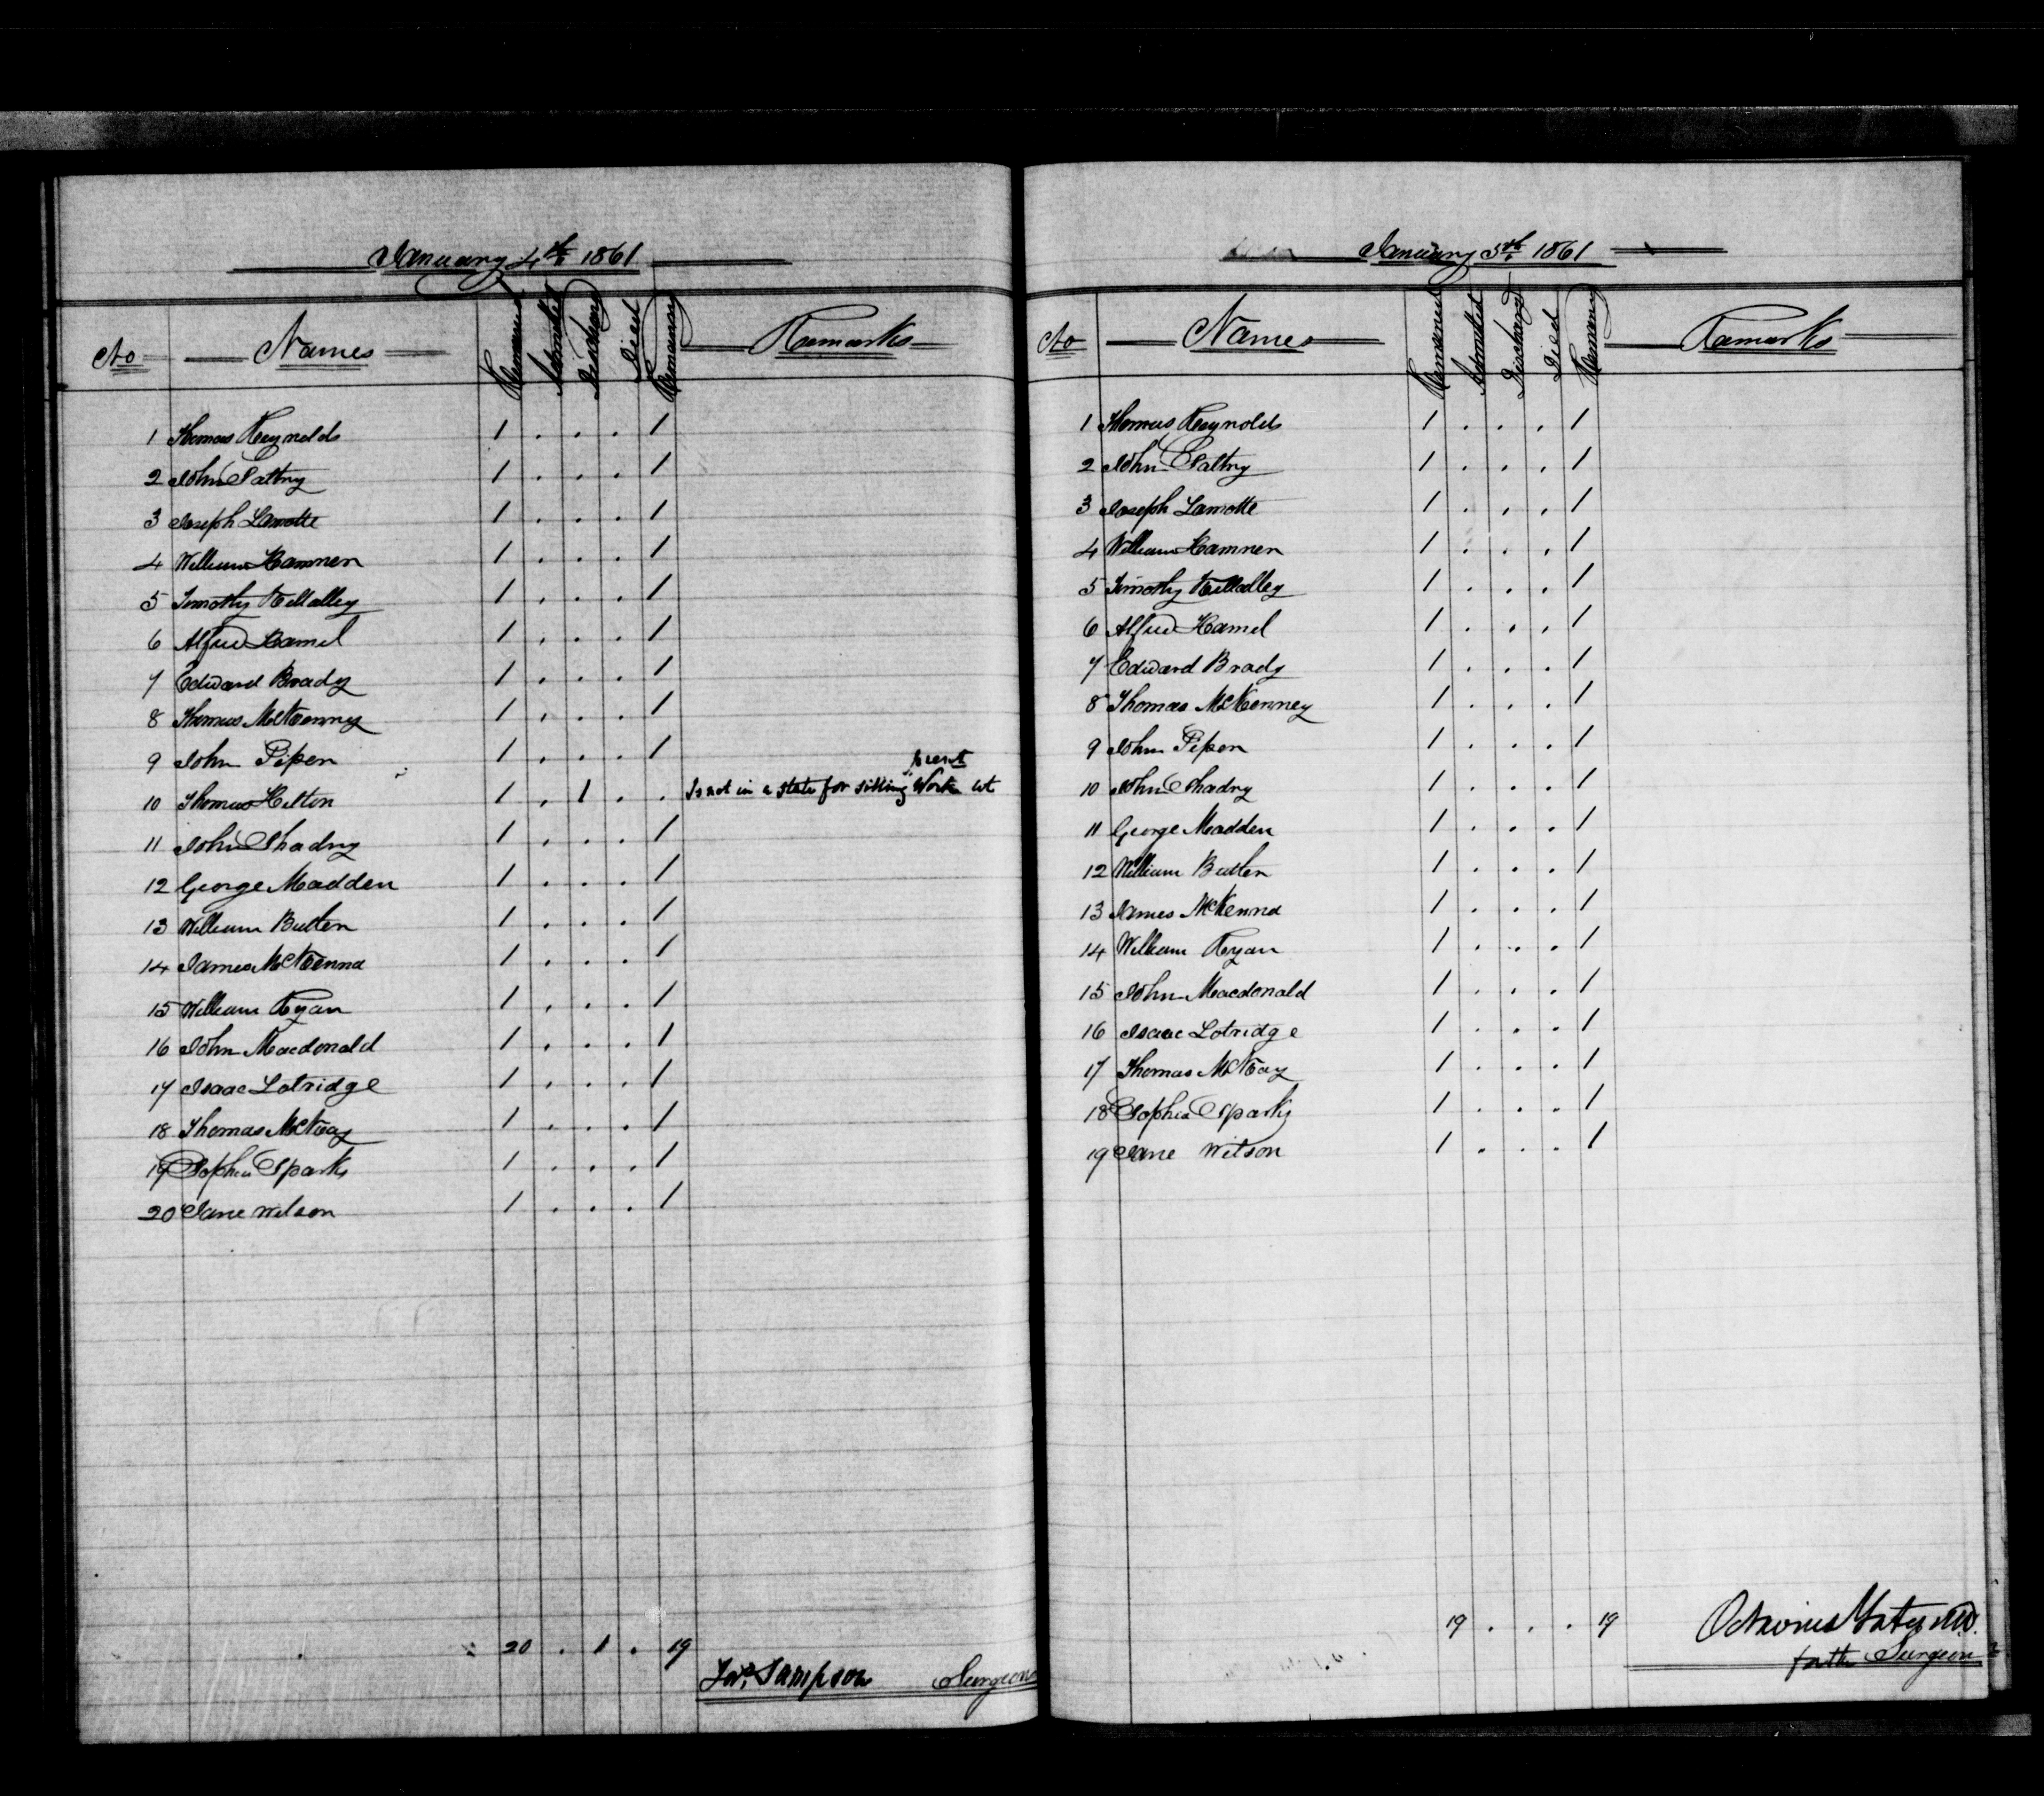 January 4th 1861
No Names Remained Admitted Discharg Died Remaining Remarks
1 Thomas Reynolds 1 . . . 1
2 John Saltry 1 . . . 1
3 Joseph Lamotte 1 . . . 1
4 William Hamner 1 . . . 1
5 Timothy 1 . . . 1
6 Alfred Hamel 1 . . . 1
7 Edward Brady 1 . . . 1
8 Thomas McKenney 1 . . . 1
9 John Piper 1 . . . 1
10 Thomas Hilton 1 . 1 . . Is not in a state for sitting Work
11 John Shadry 1 . . . 1
12 George Madden 1 . . . 1
13 William Butler 1 . . . 1
14 James McKenna 1 . . . 1
15 William Ryan 1 . . . 1
16 John Macdonald 1 . . . 1
17 Isaac Lotridge 1 . . . 1
18 Thomas McKay 1 . . . 1
19 Sophia Sparks 1 . . . 1
20 Jane Wilson 1 . . . 1
20 . 1 . 19
Jas. Sampson Surgeon
January 5th 1861
No Names Remained Admitted Discharged Died Remaining Remarks
1 Thomas Reynolds 1 . . . 1
2 John Saltry 1 . . . 1
3 Joseph Lamotte 1 . . . 1
4 William Hamner 1 . . . 1
5 Timothy 1 . . . 1
6 Alfred Hamel 1 . . . 1
7 Edward Brady 1 . . . 1
8 Thomas McKenney 1 . . . 1
9 John Piper 1 . . . 1
10 John Shadry 1 . . . 1
11 George Madden 1 . . . 1
12 William Butler 1 . . . 1
13 James McKenna 1 . . . 1
14 William Ryan 1 . . . 1
15 John Macdonald 1 . . . 1
16 Isaac Lotridge 1 . . . 1
17 Thomas McKay 1 . . . 1
18 Sophia Sparks 1 . . . 1
19 Jane Wilson 1 . . . 1
19 . . . 19
Octavius Yates MD.
for the Surgeon